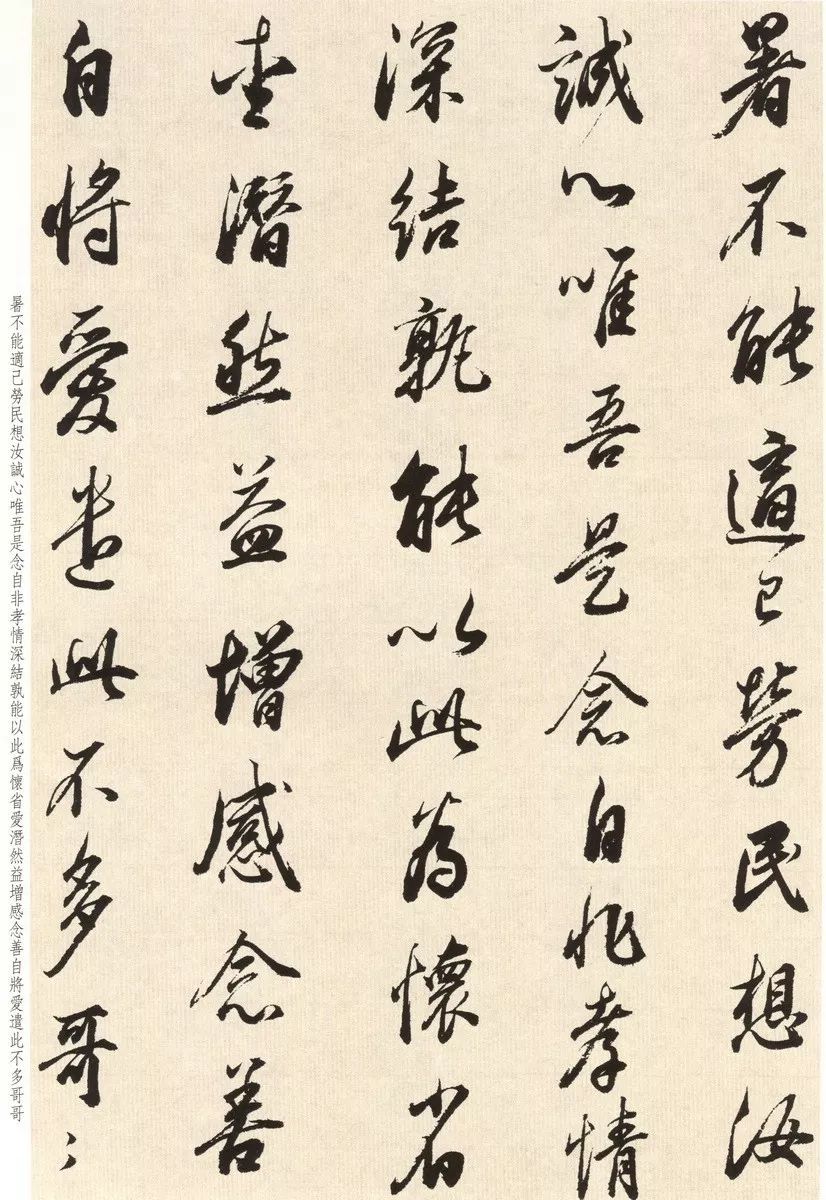 暑不能適己勞民想汝
誠心唯吾是念自非孝情
深結孰能以此為懷省
書潛然益增感念善
自將愛遣此不多哥〻
暑不能適己勞民想汝誠心唯吾是念自非孝情深結孰能以此爲懷省愛潛然益增感念善自將愛遣此不多哥哥